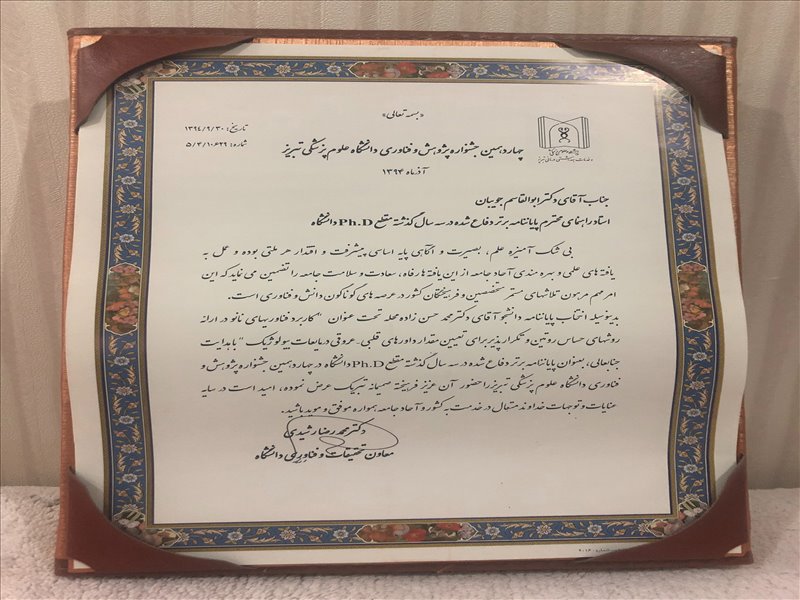 «بسمه تعالی»
تاریخ: ۱۳۹۴/۹/۳۰
شماره: ۵/۴/۱۰۶۲۹
چهاردهمین جشنواره پژوهش و فناوری دانشگاه علوم پزشکی تبریز
آذرماه ۱۳۹۴
جناب آقای دکتر ابوالقاسم جویبان
استاد راهنمای محترم پایاننامه برتر دفاع شده در سه سال گذشته مقطع Ph.D دانشگاه
بی شک آمیزه علم، بصیرت و آگاهی پایه اساسی پیشرفت و اقتدار هر ملتی بوده و عمل به
یافته های علمی و بهره مندی آحاد جامعه از این یافته ها رفاه، سعادت و سلامت جامعه را تضمین می نماید که این
امر مهم مرهون تلاشهای مستمر متخصصین و فرهیختگان کشور در عرصه های گوناگون دانش و فناوری است.
بدینوسیله انتخاب پایاننامه دانشجو آقای دکتر محمد حسن زاده محله تحت عنوان "کاربرد فناوریهای نانو در ارائه
روشهای حساس روتین و تکرارپذیر برای تعیین مقدار داورهای قلبی-عروقی در مایعات بیولوژیک" با هدایت
جنابعالی، بعنوان پایاننامه برتر دفاع شده در سه سال گذشته مقطع Ph.D دانشگاه در چهاردهمین جشنواره پژوهش و
فناوری دانشگاه علوم پزشکی تبریز را حضور آن عزیز فرهیخته صمیمانه تبریک عرض نموده، امید است در سایه
عنایات و توجهات خداوند متعال در خدمت به کشور و آحاد جامعه همواره موفق و موید باشید.
دکتر محمدرضا رشیدی
معاون تحقیقات و فناوری دانشگاه